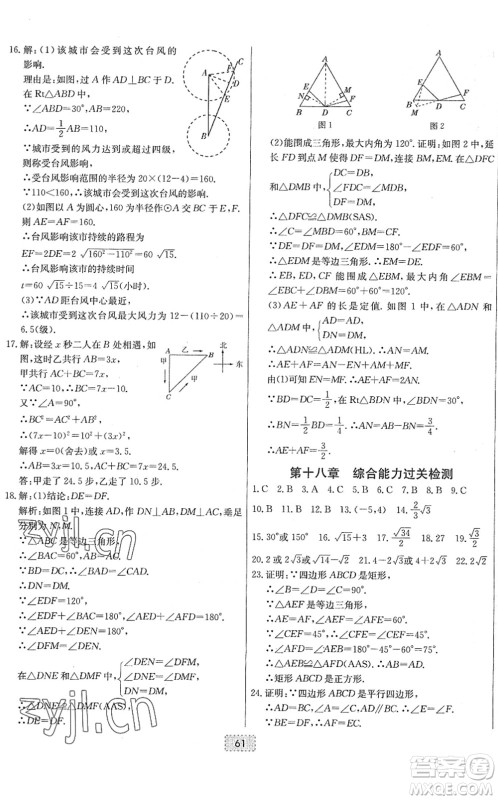 16. 解:(1)该城市会受到这次台风的
影响.
理由是:如图,过 A 作 AD⊥BC 于 D.
在 Rt△ABD 中,
∵∠ABD=30°,AB=220,
∴AD=1/2 AB=110,
∵城市受到的风力达到或超过四级,
则称受台风影响,
∴受台风影响范围的半径为 20×(12-4)=160.
∵110<160,∴该城市会受到这次台风的影响.
(2)如图以 A 为圆心,160 为半径作⊙A 交 BC 于 E,F.
则 AE=AF=160.
∴台风影响该市持续的路程为
EF=2DE=2√(160²-110²)=60√15.
∴台风影响该市的持续时间
t=60√15÷15=4√15(小时).
(3)∵AD 距台风中心最近,
∴该城市受到这次台风最大风力为 12-(110÷20)=
6.5(级).
17. 解:设经 x 秒二人在 B 处相遇,如
图,这时乙共行 AB=3x,
甲共行 AC+BC=7x,
∵AC=10,∴BC=7x-10,
又∵∠A=90°,
∴BC²=AC²+AB²,
∴(7x-10)²=10²+(3x)²,
∴x=0(舍去)或 x=3.5,
∴AB=3x=10.5,AC+BC=7x=24.5,
答:甲走了 24.5 步,乙走了 10.5 步.
18. 解:(1)结论:DE=DF.
解析:如图 1 中,连接 AD,作 DN⊥AB,DM⊥AC,垂足
分别为 N,M.
∵△ABC 是等边三角形,
∴∠BAC=60°,AB=AC.
∵BD=DC,
∴DN=DM.
∵∠EDF=120°,
∴∠EDF+∠BAC=180°,∴∠AED+∠AFD=180°,
∵∠AED+∠DEN=180°,
∴∠DEN=∠DFM.
在△DNE 和△DMF 中,{∠DEN=∠DFM
∠DNE=∠DMF
DN=DM
∴△DNE≌△DMF(AAS),
∴DE=DF.
图 1
图 2
(2)能围成三角形,最大内角为 120°.证明:如图 2 中,
延长 FD 到点 M 使得 DF=DM,连接 BM,EM.
在△DFC 和△DMB 中,{DC=DB
∠CDF=∠BDM
DF=DM
∴△DFC≌△DMB(SAS),
∴∠C=∠MBD=60°,BM=CF,
∵DE=DF=DM,∠EDM=180°-∠EDF=60°,
∴△EDM 是等边三角形,∴EM=DE.
∴EB,ED,CF 能围成△EBM,
最大内角∠EBM=60°+60°=120°.
(3)AE+AF 的长是定值.在△ADN 和
△ADM 中,{AD=AD
DN=DM
∴△ADN≌△ADM,∴AN=AM,
∴AE+AF=AN-EN+AM+MF,
由(1)可知 EN=MF.∴AE+AF=2AN,
∵BD=DC=1/2,在 Rt△BDN 中,∠BDN=30°,
∴BN=1/2 BD=1/4,∴AN=AB-BN=3/4,
∴AE+AF=3/2.
第十八章 综合能力过关检测
1. C 2. B 3. C 4. B 5. D 6. D 7. B 8. C 9. C
10. B 11. B 12. B 13. (-5,4) 14. 2/3√3
15. 30°或 150° 16. 4 17. √34/2 18. 27 19. √3/2
20. 2 或 2√3 或√14-√2 21. 2√3 或 4+2√3 22. 2√2
23. 证明:∵四边形 ABCD 是矩形,
∴∠B=∠C=∠BAD=90°,AB=CD,
∵△AEF 是等边三角形,
∴AE=AF,∠AEF=∠AFE=60°,
又∠CEF=45°,∴∠CFE=∠CEF=45°,
∴∠AFD=∠AEB=180°-45°-60°=75°,
∴△AEB≌△AFD(AAS),
∴AB=AD,∴矩形 ABCD 是正方形.
24. 证明:(1)∵四边形 ABCD 是平行四边形,
∴AD=BC,AD∥BC,
61
zyjl.cn
zyjl.cn
答案圈
MXQE.COM